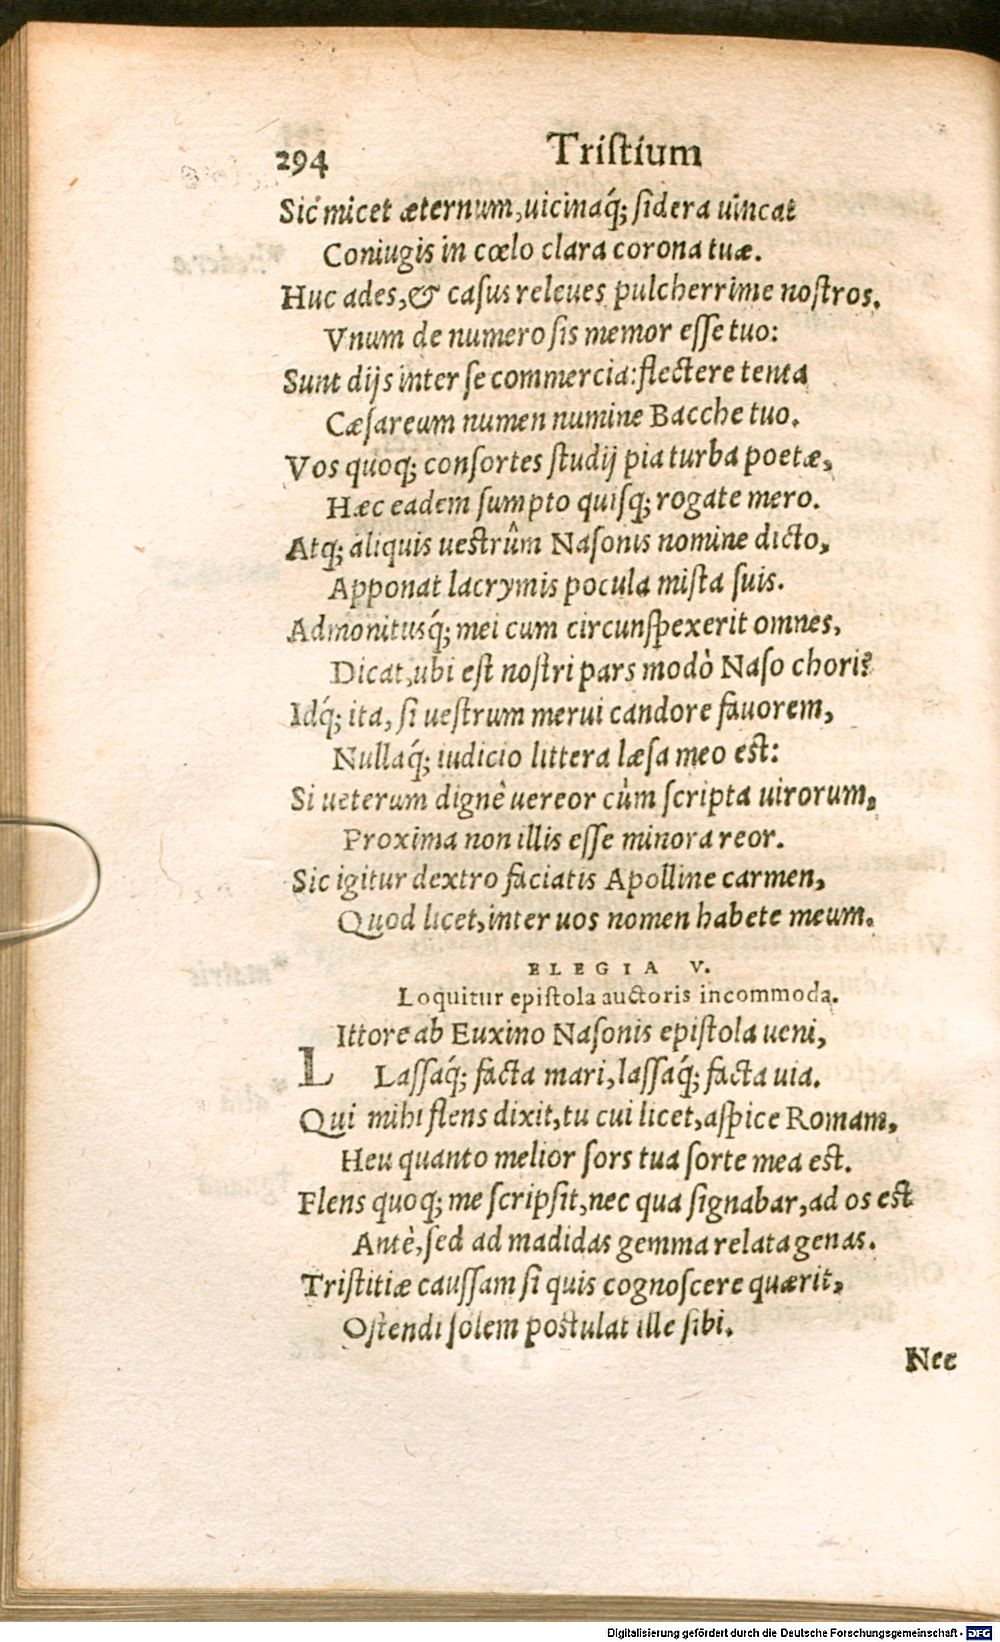 294 Tristium
Sic micet æternum, uicinaq́; sidera uincat
Coniugis in cœlo clara corona tuæ.
Huc ades, & casus releues pulcherrime nostros.
Vnum de numero sis memor esse tuo:
Sunt dijs inter se commercia: flectere tenta
Cæsareum numen numine Bacche tuo.
Vos quoq; consortes studij pia turba poetæ,
Hæc eadem sumpto quisq; rogate mero.
Atq; aliquis uestrûm Nasonis nomine dicto,
Apponat lacrymis pocula mista suis.
Admonitusq́; mei cum circunspexerit omnes,
Dicat, ubi est nostri pars modò Naso chori?
Idq́; ita, si uestrum merui candore fauorem,
Nullaq́; iudicio littera læsa meo est:
Si ueterum dignè uereor cùm scripta uirorum,
Proxima non illis esse minora reor.
Sic igitur dextro faciatis Apolline carmen,
Quod licet, inter uos nomen habete meum.
ELEGIA V.
Loquitur epistola auctoris incommoda.
LIttore ab Euxino Nasonis epistola ueni,
Lassaq́; facta mari, lassaq́; facta uia.
Qui mihi flens dixit, tu cui licet, aspice Romam,
Heu quanto melior sors tua sorte mea est.
Flens quoq; me scripsit, nec qua signabar, ad os est
Antè, sed ad madidas gemma relata genas.
Tristitiæ caussam si quis cognoscere quærit,
Ostendi solem postulat ille sibi.
Nec
Digitalisierung gefördert durch die Deutsche Forschungsgemeinschaft - DFG